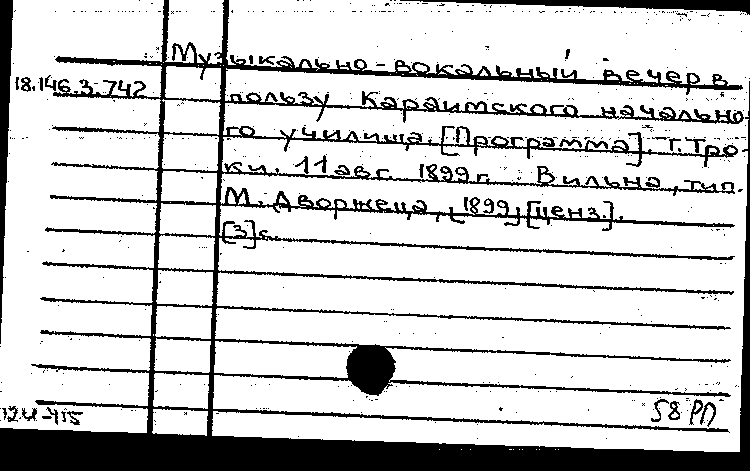 Музыкально-вокальный вечер в
18.146.3.742
пользу Караимского начально-
го училища. [Программа]. Г. Тро-
ки. 11 авг. 1899 г. Вильна, тип.
М. Дворжеца, [1899] [ценз.].
[3] с.
58 РП